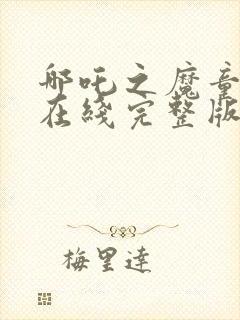 哪吒之魔童
在綫完整版
梅里達